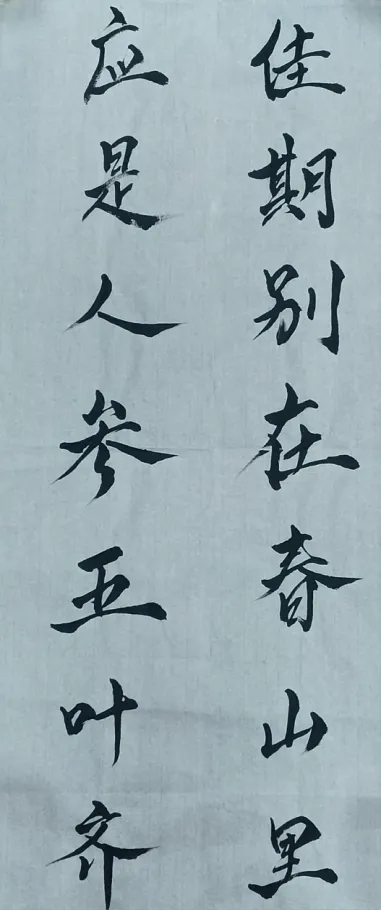 佳期别在春山里
应是人参五叶齐